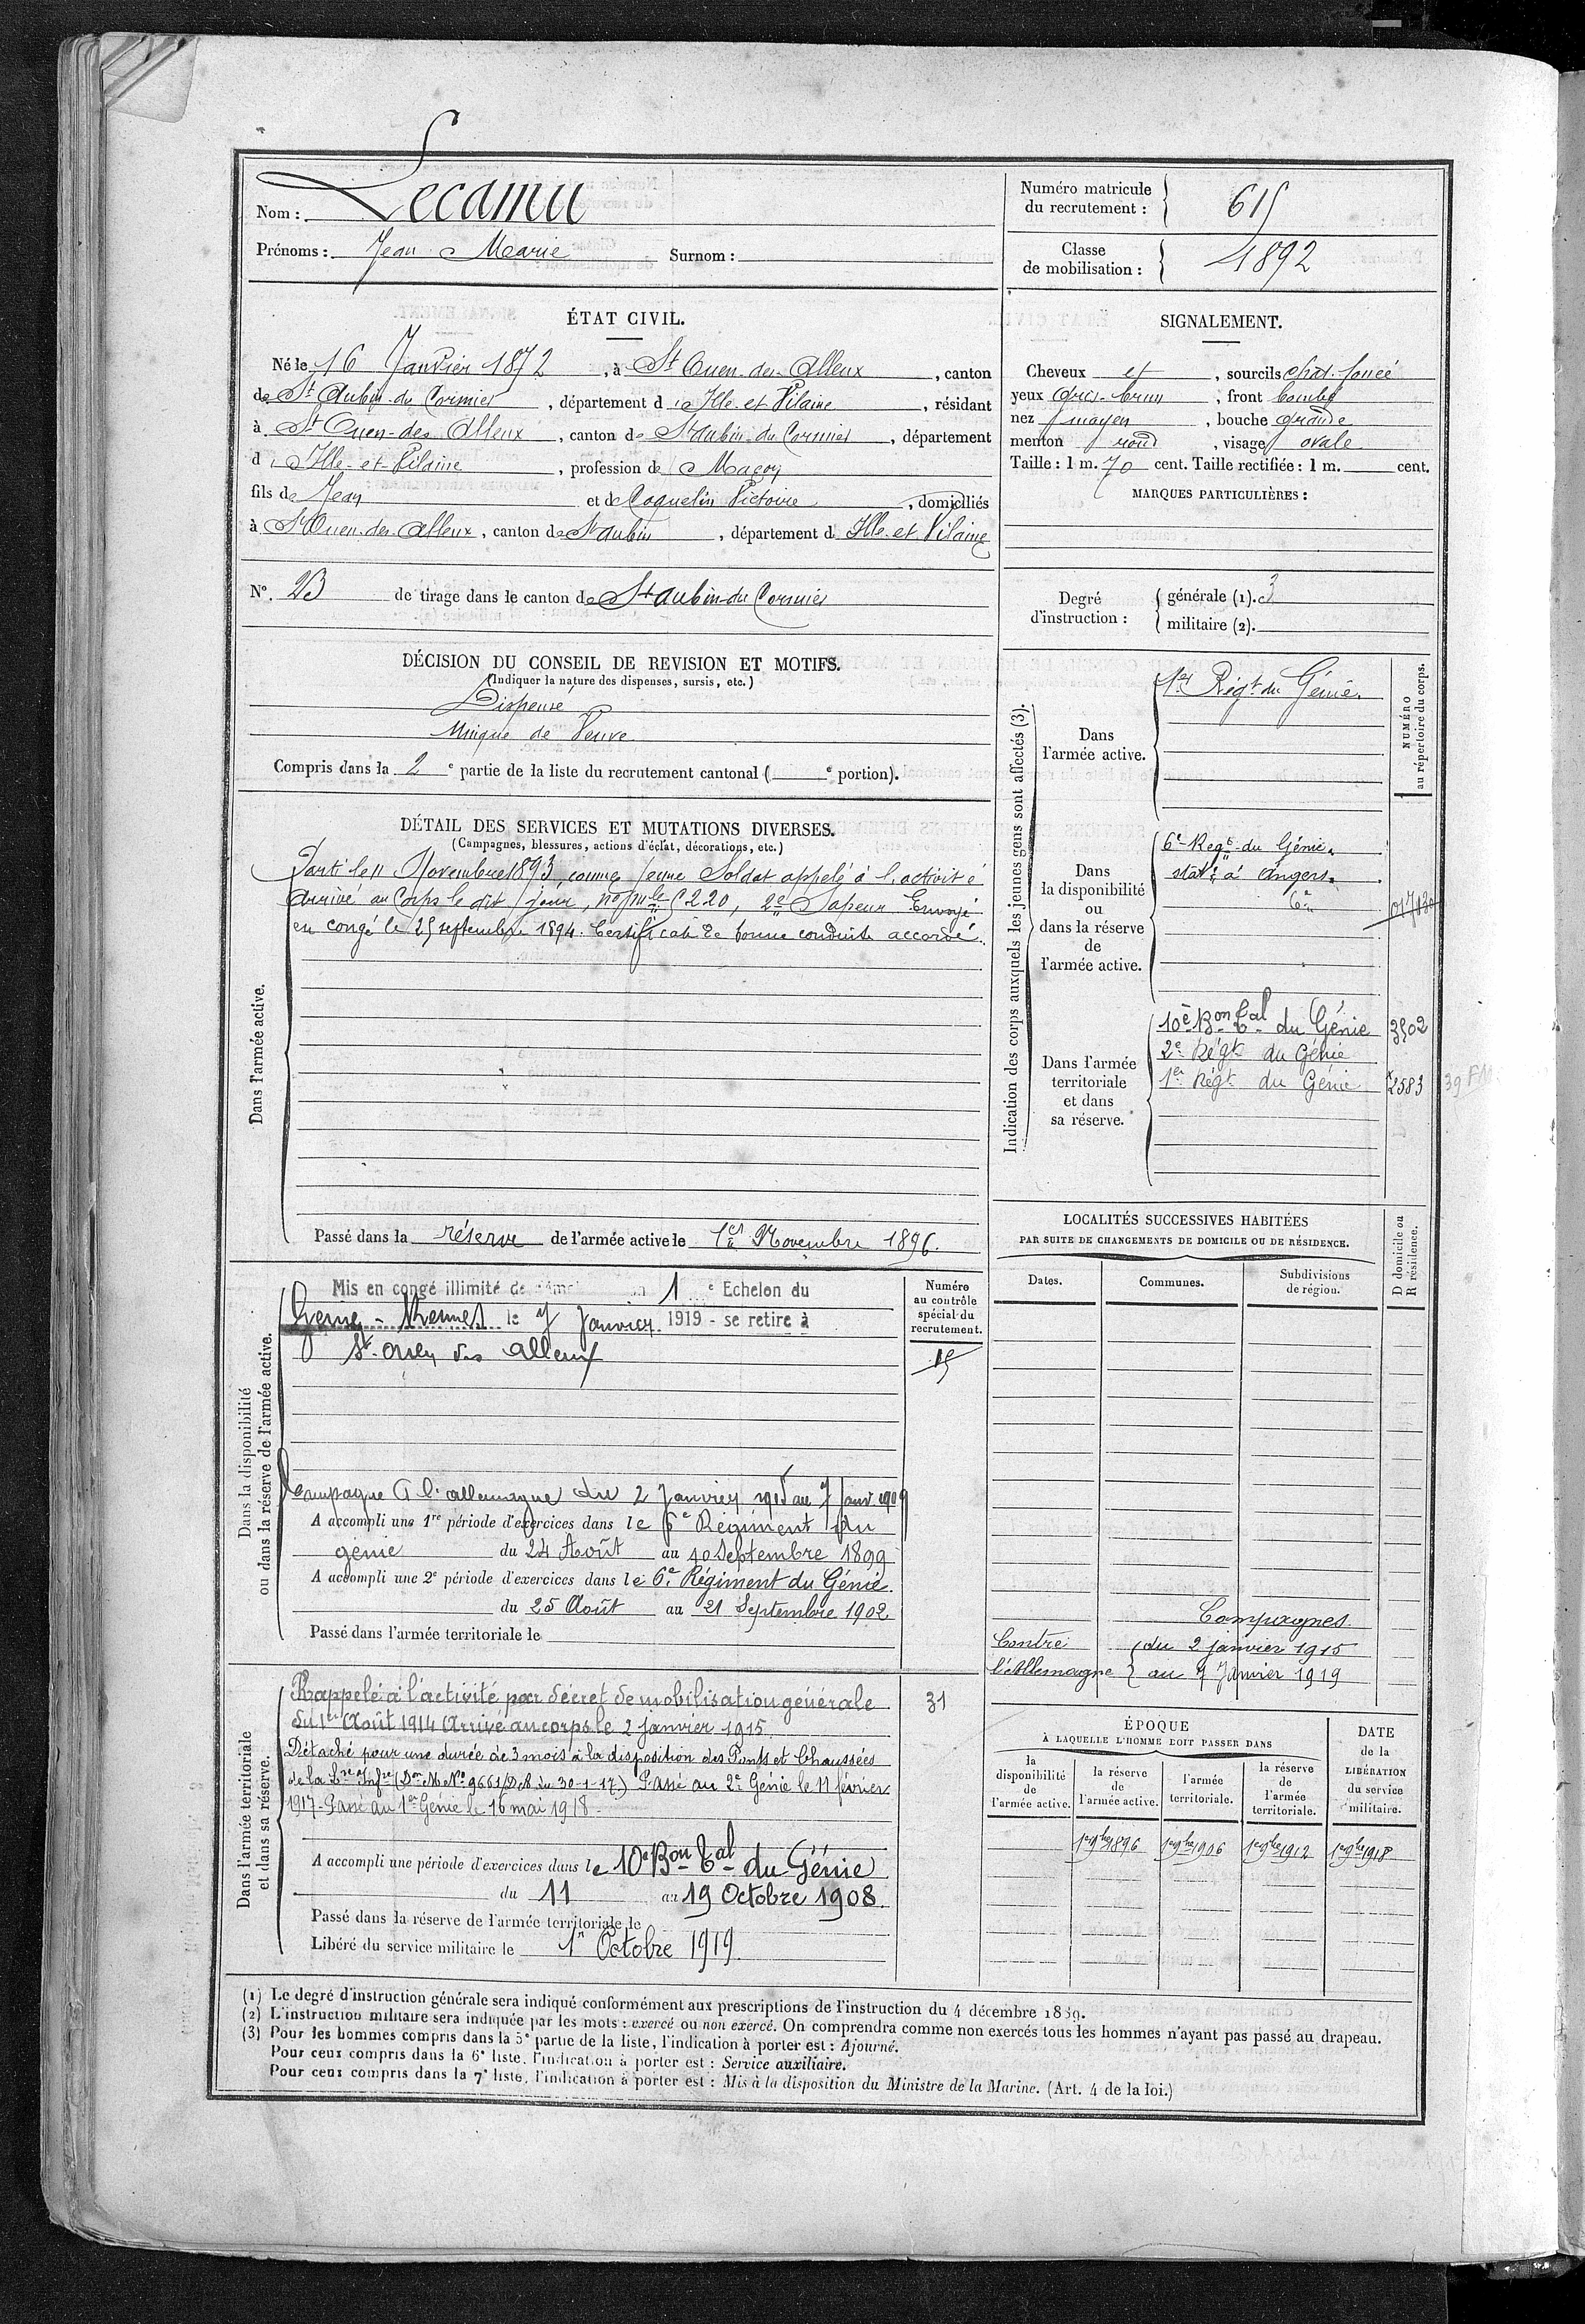 Nom : Lecamu
Prénoms : Jean Marie Surnom :
Numéro matricule du recrutement : 615
Classe de mobilisation : 1892
ÉTAT CIVIL.
Né le 16 Janvier 1872, à St Ouen-des-Alleux, canton
de St Aubin-du-Cormier, département d'Ille-et-Vilaine, résidant
à St Ouen-des-Alleux, canton de St Aubin du Cormier, département
d'Ille-et-Vilaine, profession de Maçon
fils de Jean et de Coquelin Victoire, domiciliés
à St Ouen-des-Alleux, canton de St Aubin, département d'Ille-et-Vilaine
N° 23 de tirage dans le canton de St Aubin du Cormier
SIGNALEMENT.
Cheveux et, sourcils chat. foncé
yeux gris-brun, front bombé
nez moyen, bouche grande
menton rond, visage ovale
Taille : 1 m. 70 cent. Taille rectifiée : 1 m. cent.
MARQUES PARTICULIÈRES :
Degré d'instruction : générale (1). 3
militaire (2).
DÉCISION DU CONSEIL DE REVISION ET MOTIFS.
(Indiquer la nature des dispenses, sursis, etc.)
Dispensé
Unique de Veuve
Compris dans la 2e partie de la liste du recrutement cantonal ( e portion).
DÉTAIL DES SERVICES ET MUTATIONS DIVERSES.
(Campagnes, blessures, actions d'éclat, décorations, etc.)
Dans l'armée active.
Parti le 11 Novembre 1893, comme jeune Soldat appelé à l'activité
arrivé au Corps le dit jour, no mle 5220, 2e Sapeur Envoyé
en congé le 25 septembre 1894. Certificat de bonne conduite accordé.
Passé dans la réserve de l'armée active le 1er Novembre 1896.
Indication des corps auxquels les jeunes gens sont affectés (3).
NUMÉRO au répertoire du corps.
Dans l'armée active.
1er Régt du Génie.
Dans la disponibilité ou dans la réserve de l'armée active.
6e Regt du Génie
statné à Angers.
6e
Dans l'armée territoriale et dans sa réserve.
10e Bon Tal du Génie 3502
2e Régt du Génie
1er Régt du Génie 2583
Dans la disponibilité ou dans la réserve de l'armée active.
Mis en congé illimité de 1 e Echelon du
Génie - Rennes le 7 Janvier 1919 - se retire à
St. Ouen des Alleux
Numéro au contrôle spécial du recrutement.
15
Campagne C l'allemagne du 2 Janvier 1915 au 7 Janv. 1919
A accompli une 1re période d'exercices dans le 6e Régiment du
génie du 24 Août au 10 Septembre 1899
A accompli une 2e période d'exercices dans le 6e Régiment du Génie.
du 25 Août au 21 Septembre 1902
Passé dans l'armée territoriale le
LOCALITÉS SUCCESSIVES HABITÉES
PAR SUITE DE CHANGEMENTS DE DOMICILE OU DE RÉSIDENCE.
Dates. Communes. Subdivisions de région. D domicile ou R résidence.
Campagnes.
Contre du 2 janvier 1915
l'Allemagne au 7 Janvier 1919
Dans l'armée territoriale et dans sa réserve.
Rappelé à l'activité par décret de mobilisation générale
du 1er Août 1914 Arrivé au corps le 2 janvier 1915.
Détaché pour une durée de 3 mois à la disposition des Ponts et Chaussées
de la Lre Infre (Don M. No 9661/D.R. du 30-1-17.) Passé au 2e Génie le 11 février
1917 - Passé au 1er Génie le 16 mai 1918
31
A accompli une période d'exercices dans le 10e Bon Tal du Génie
du 11 au 19 Octobre 1908.
Passé dans la réserve de l'armée territoriale le
Libéré du service militaire le 1er Octobre 1919
ÉPOQUE
À LAQUELLE L'HOMME DOIT PASSER DANS
la disponibilité de l'armée active. la réserve de l'armée active. l'armée territoriale. la réserve de l'armée territoriale. DATE de la LIBÉRATION du service militaire.
1er 9bre 1896 1er 9bre 1906 1er 9bre 1912 1er 9bre 1918
(1) Le degré d'instruction générale sera indiqué conformément aux prescriptions de l'instruction du 4 décembre 1889.
(2) L'instruction militaire sera indiquée par les mots : exercé ou non exercé. On comprendra comme non exercés tous les hommes n'ayant pas passé au drapeau.
(3) Pour les hommes compris dans la 5e partie de la liste, l'indication à porter est : Ajourné.
Pour ceux compris dans la 6e liste, l'indication à porter est : Service auxiliaire.
Pour ceux compris dans la 7e liste, l'indication à porter est : Mis à la disposition du Ministre de la Marine. (Art. 4 de la loi.)